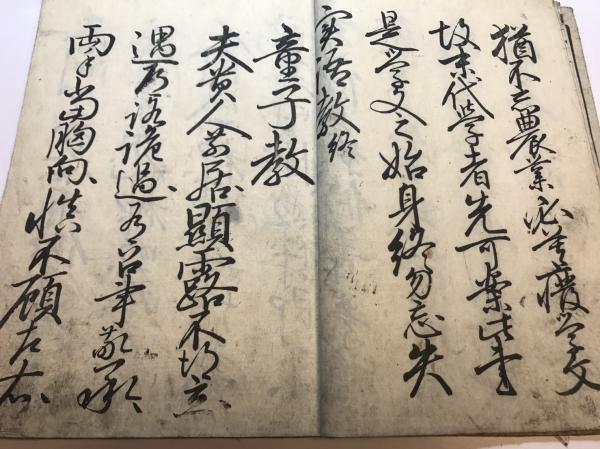 猶不忘農業必莫廃学文
故末代学者先可案此書
是学文之始身終勿忘失
実語教終
童子教
夫貴人前居顕露不得立
遇道路跪過有召事敬承
両手当胸向慎不顧左右